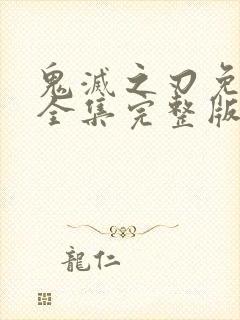 鬼滅之刃免
全集完整版
龍仁